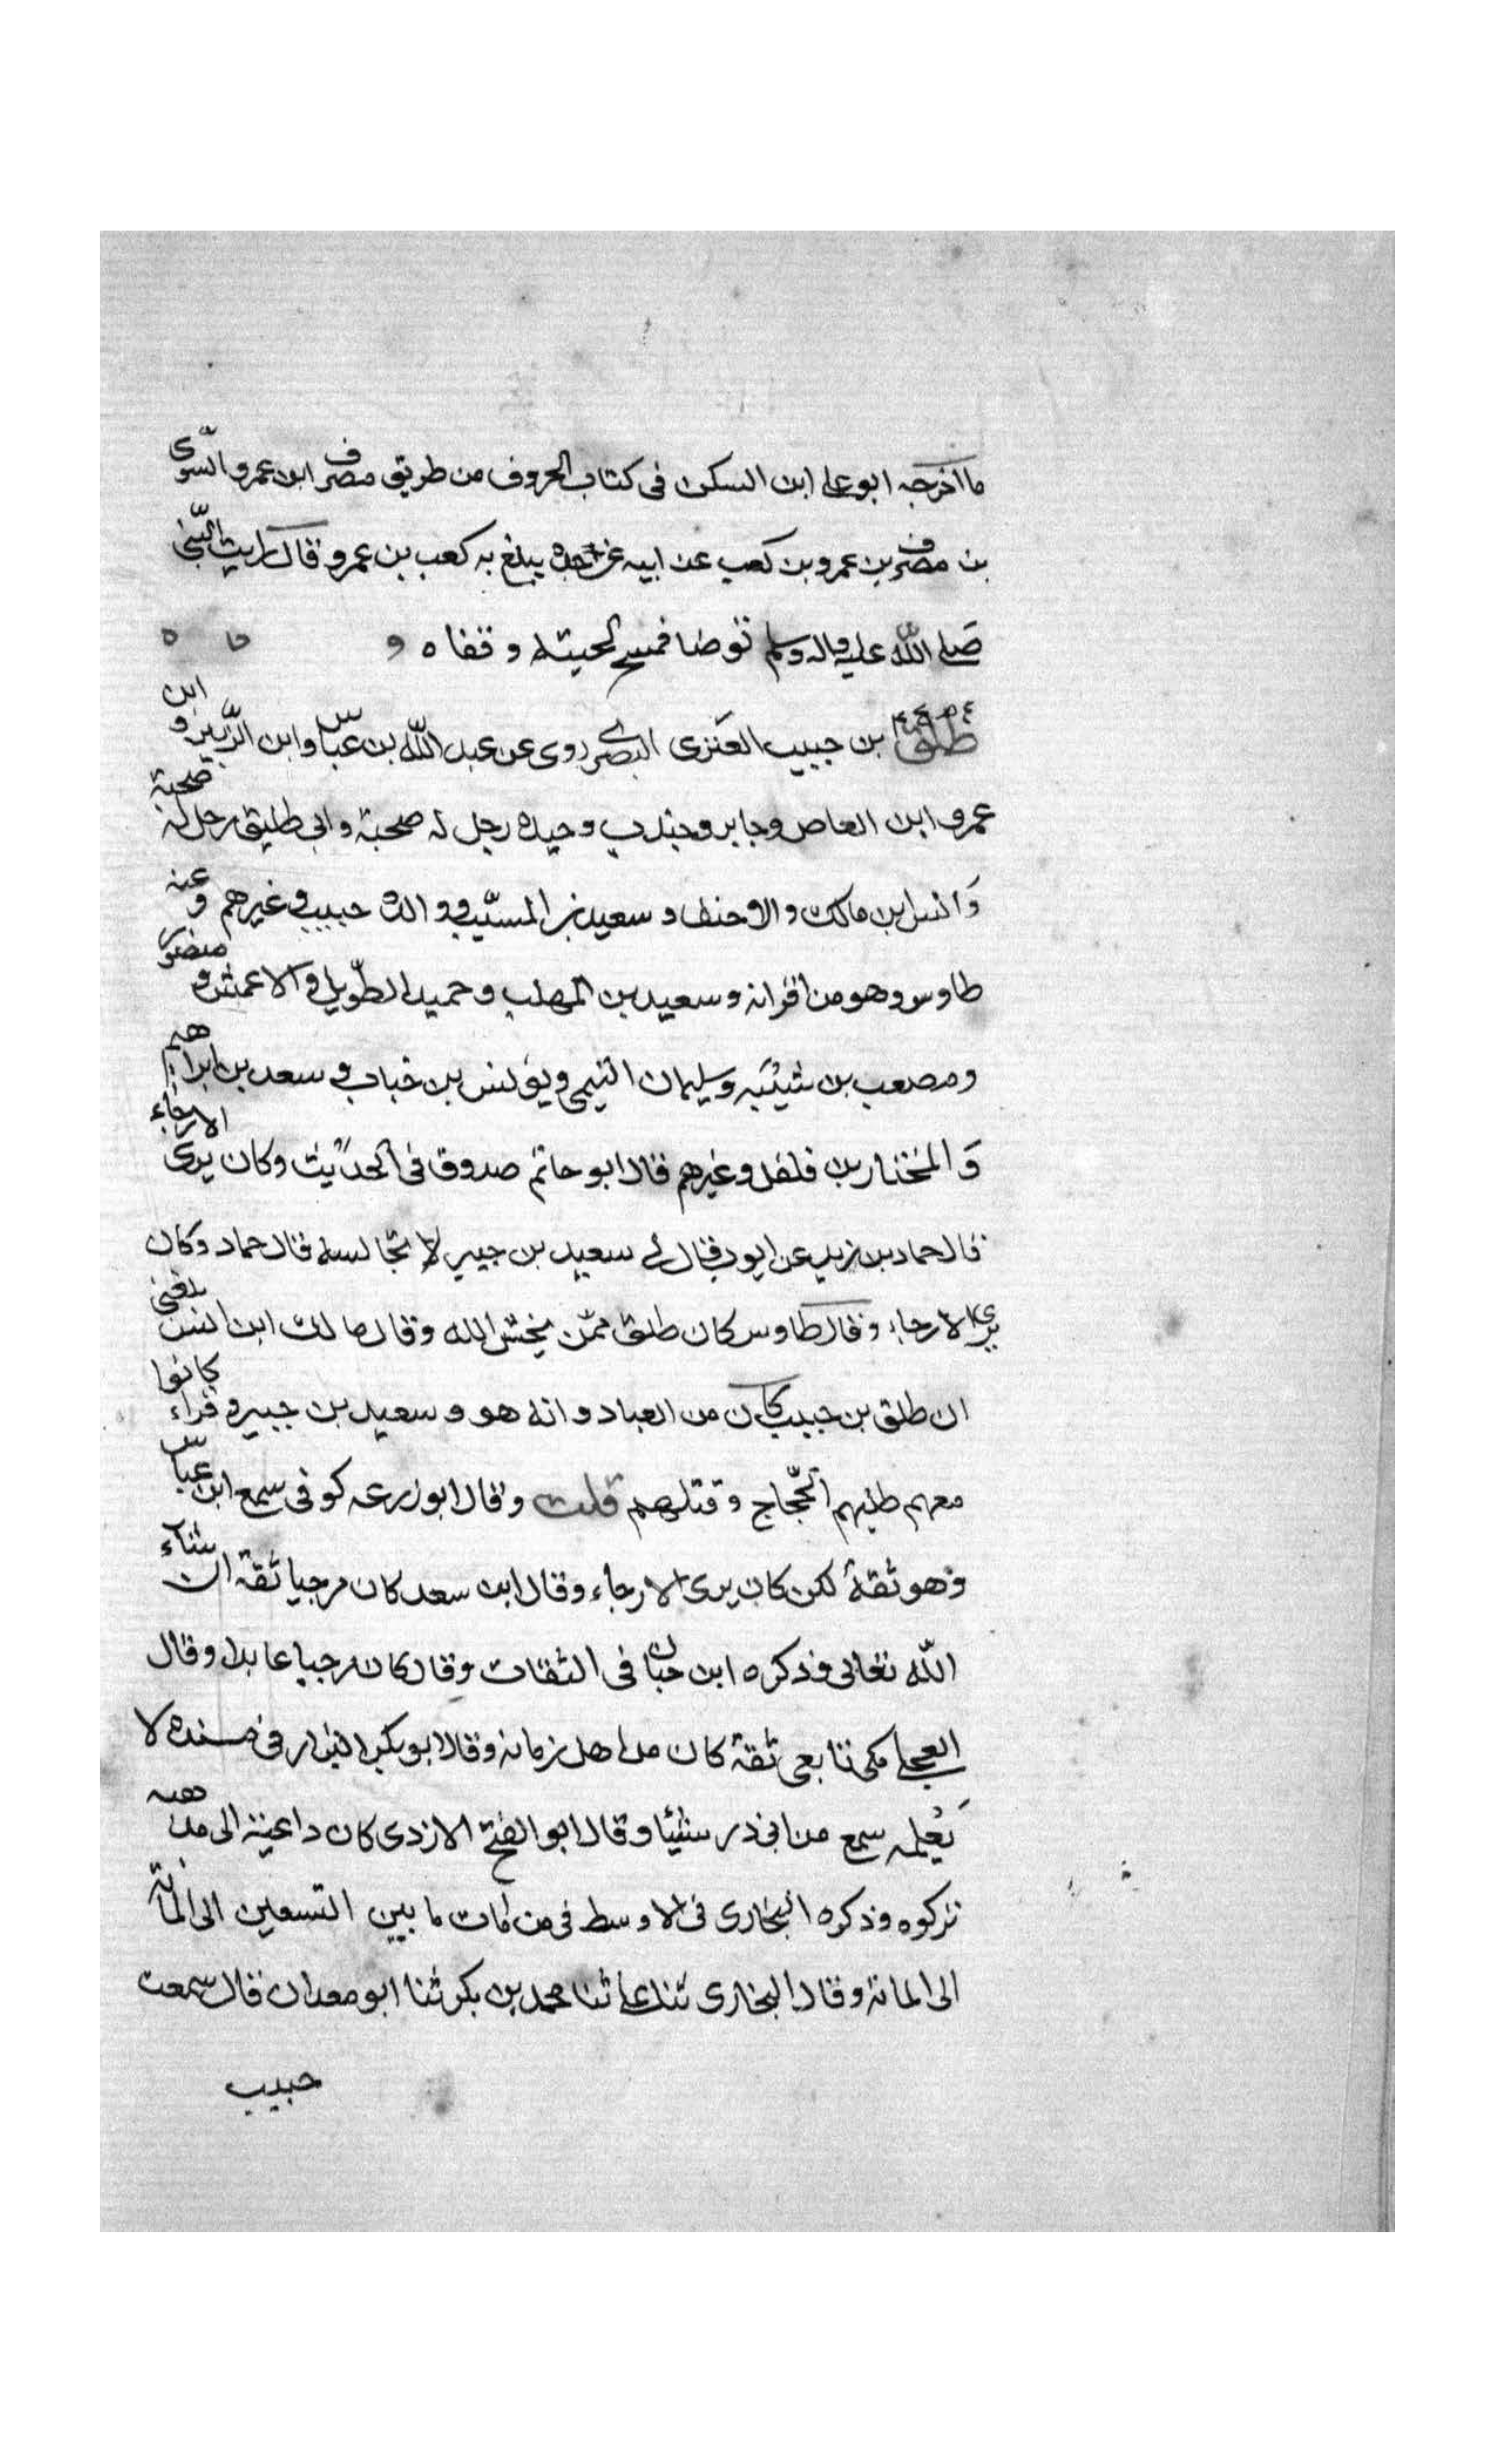 ما اخرجه ابو على ابن السكن فى كتاب الحروف من طريق مصرف ابن عمرو السرى
بن مصرف بن عمرو بن كعب عن ابيه عن جده يبلغ به كعب بن عمرو قال رايت النبى
صلى الله عليه واله وسلم توضا فمسح لحيته وقفاه
طلق بن حبيب العنزى البصرى روى عن عبد الله بن عباس وابن الزبير و ابن
عمرو ابن العاص وجابر وجندب وحيده رجل له صحبة وابى طليق رجل له صحبة
وانس ابن مالك والاحنف و سعيد بن المسيب ووالده حبيب وغيرهم وعنه
طاوس وهو من اقرانه وسعيد بن المهلب وحميد الطويل والاعمش و منصور
ومصعب بن شيبه وسليمان التيمى ويونس بن خباب وسعد بن ابراهيم
والمختار بن فلفل وغيرهم قال ابو حاتم صدوق فى الحديث وكان يرى الارجاء
قال حماد بن زيد عن ايوب قال لى سعيد بن جبير لا تجالسه قال حماد وكان
يرى الارجاء وقال طاوس كان طلق ممن يخشى الله وقال مالك ابن انس بلغنى
ان طلق بن حبيب كان من العباد وانه هو وسعيد بن جبير وقراء كانوا
معهم طلبهم الحجاج وقتلهم قلت وقال ابو زرعه كوفى سمع ابن عباس
وهو ثقة لكن كان يرى الارجاء وقال ابن سعد كان مرجيا ثقة ان شاء
الله تعالى وذكره ابن حبان فى الثقات وقال كان مرجيا عابدا وقال
العجلى مكى تابعى ثقة كان من اهل زمانه وقال ابو بكر البزار فى مسنده لا
يعلمه سمع من ابى ذر شئيا وقال ابو الفتح الازدى كان داعية الى مذهبه
تركوه وذكره البخارى فى الاوسط فى من مات ما بين التسعين الى المائة
الى المائة وقال البخارى ثنا على ثنا محمد بن بكر ثنا ابو معدان قال سمعت
حبيب